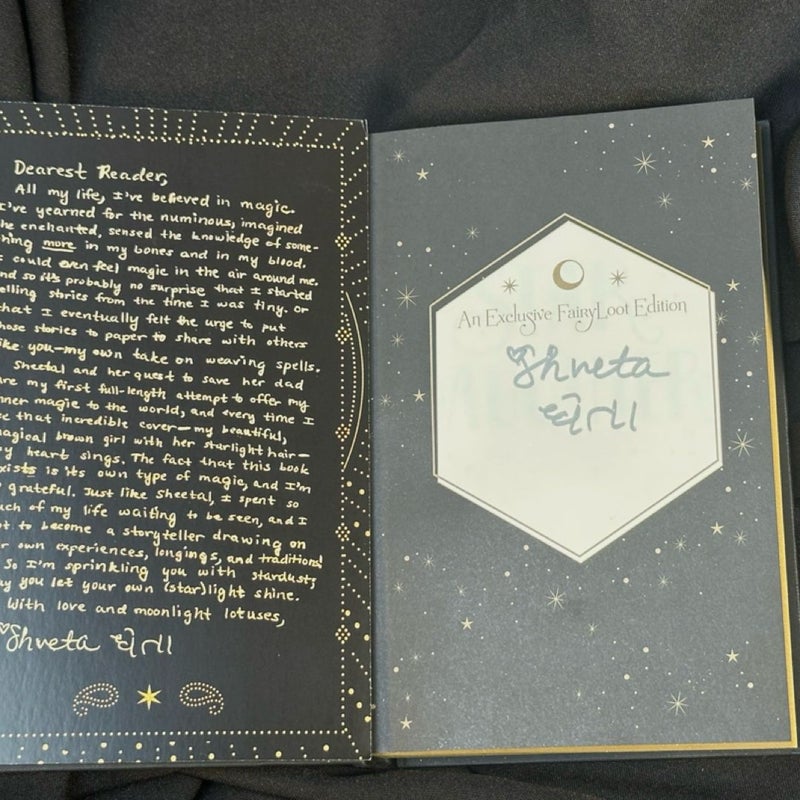 Dearest Reader,
All my life, I've believed in magic.
I've yearned for the numinous, imagined
he enchanted, sensed the knowledge of some-
hing more in my bones and in my blood.
I could even feel magic in the air around me.
nd so it's probably no surprise that I started
elling stories from the time I was tiny. Or
that I eventually felt the urge to put
hose stories to paper to share with others
ike you—my own take on weaving spells.
Sheetal and her quest to save her dad
are my first full-length attempt to offer my
nner magic to the world, and every time I
ee that incredible cover—my beautiful,
agical brown girl with her starlight hair—
y heart sings. The fact that this book
xists is its own type of magic, and I'm
o grateful. Just like Sheetal, I spent so
uch of my life waiting to be seen, and I
ot to become a storyteller drawing on
r own experiences, longings, and traditions!
So I'm sprinkling you with stardust;
ay you let your own (star)light shine.
With love and moonlight lotuses,
Shveta
An Exclusive FairyLoot Edition
Shveta